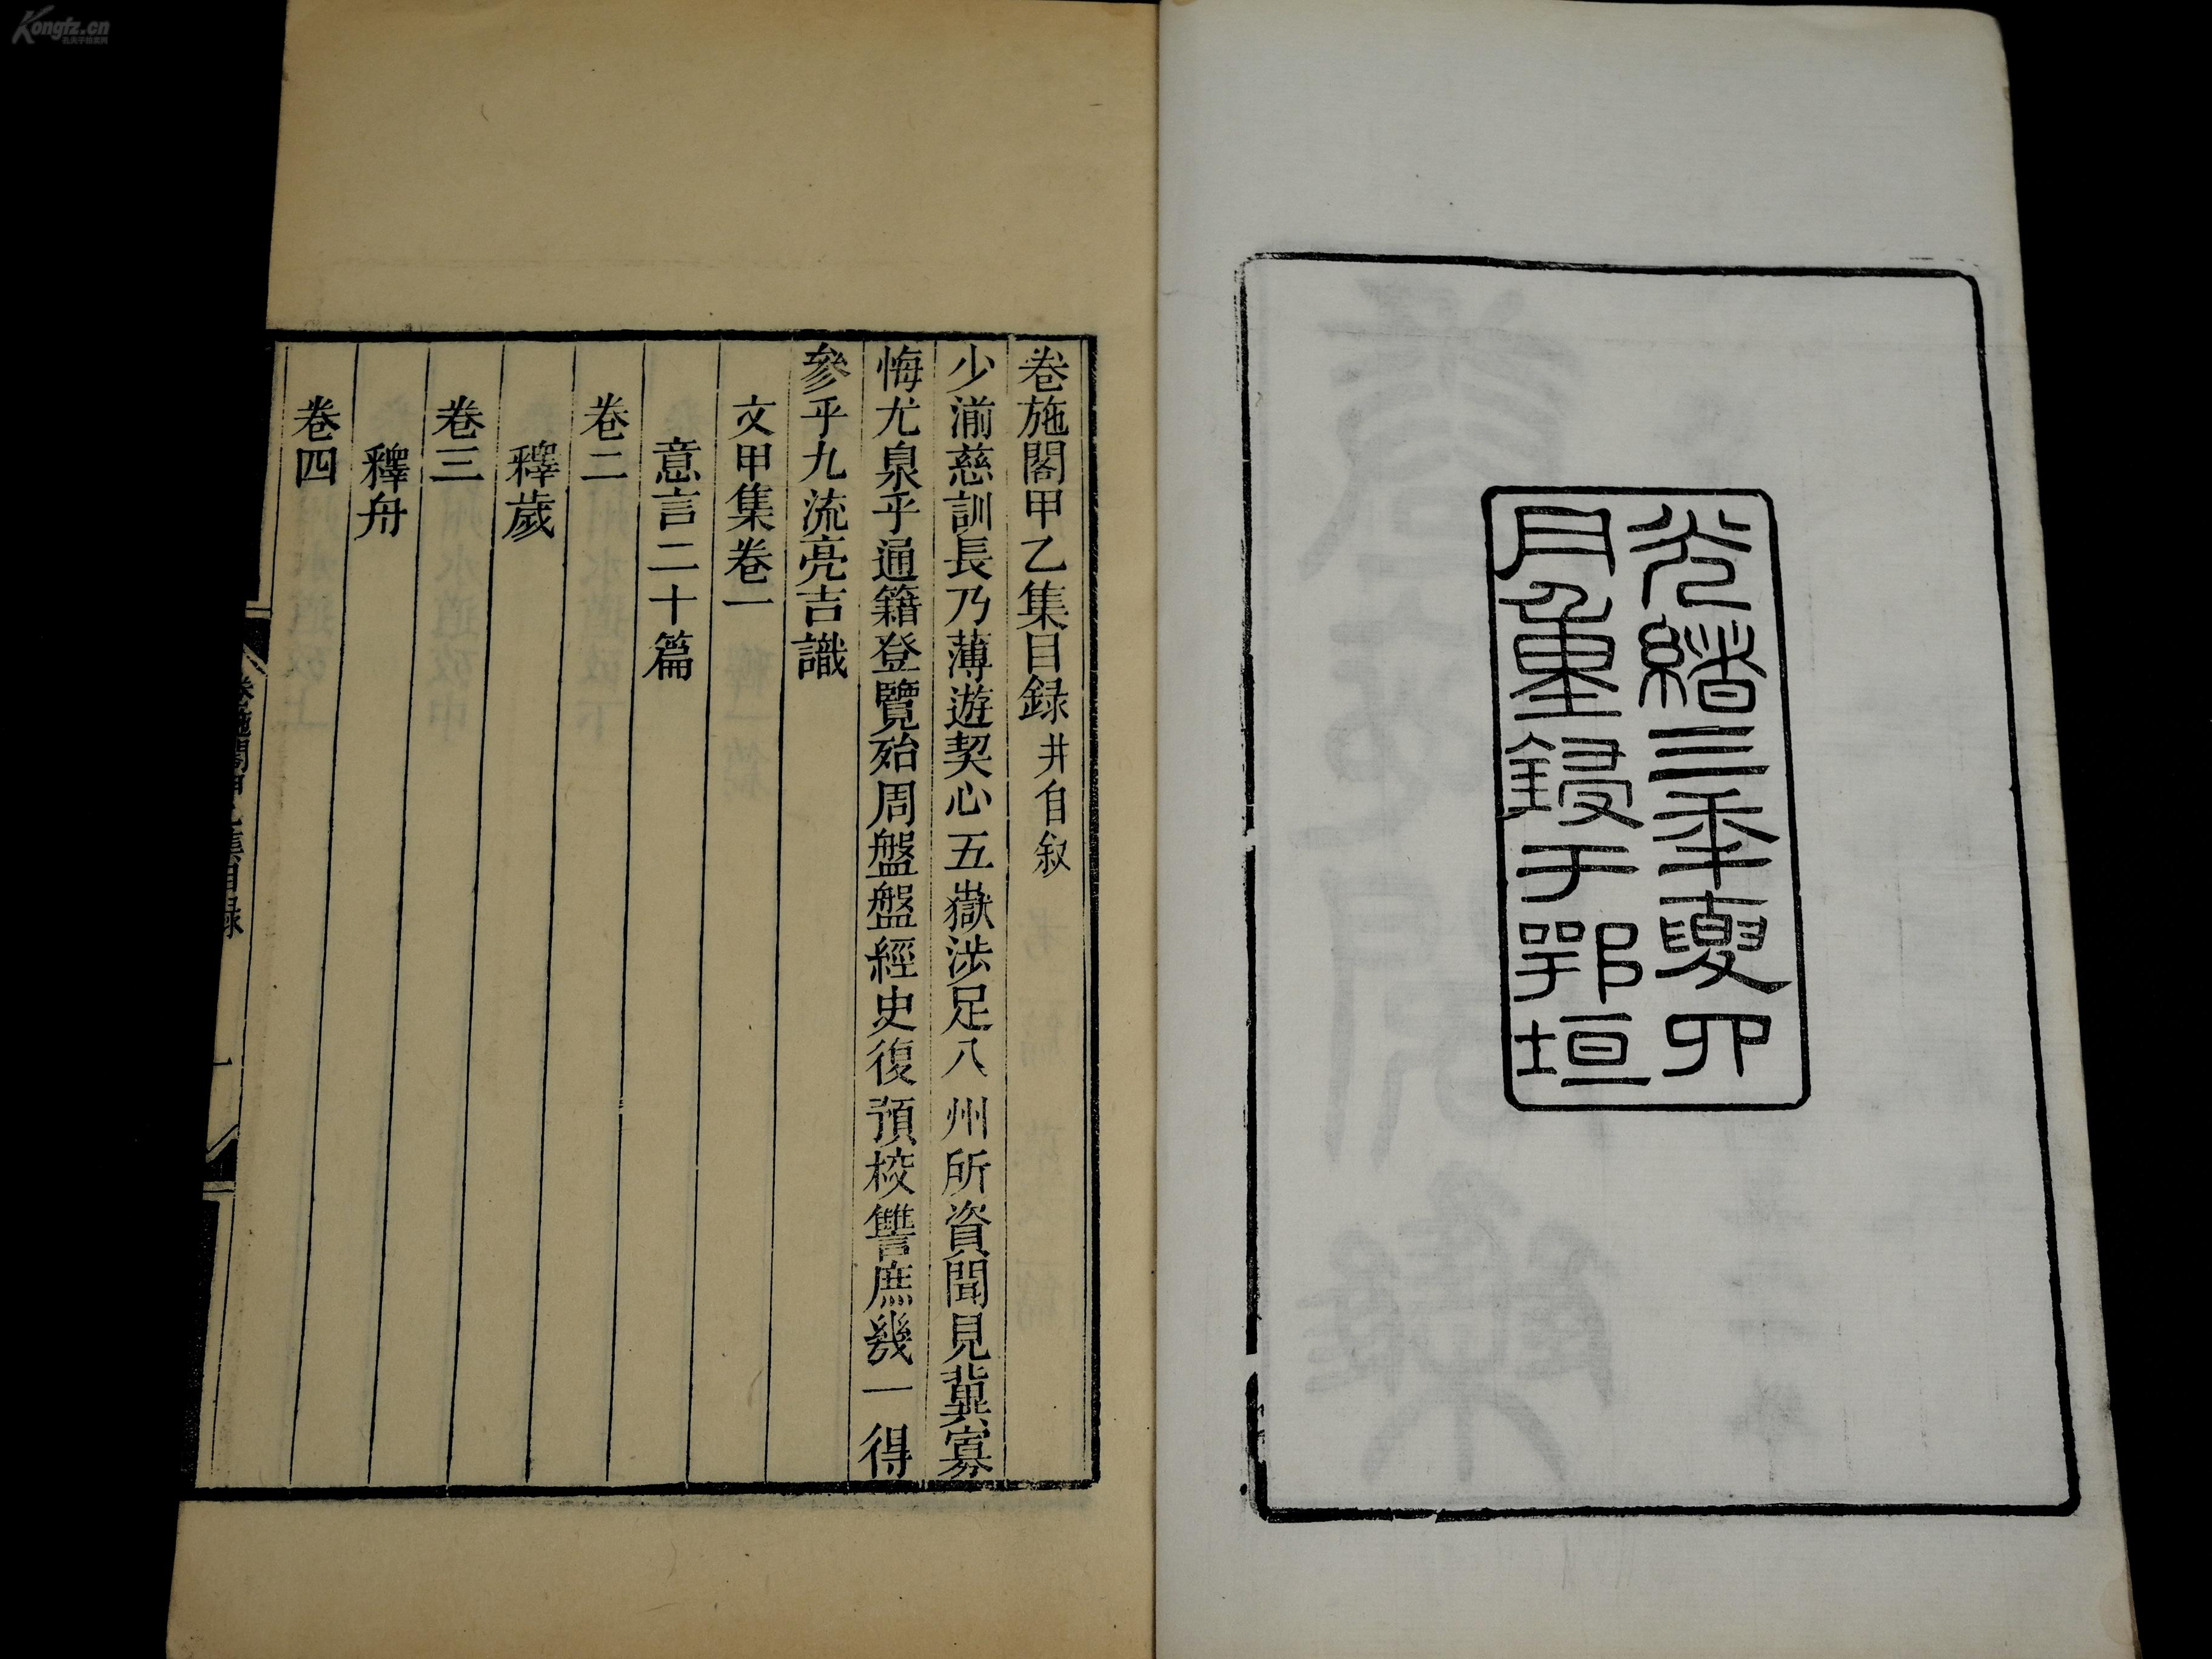 光緒三年夏四
月重鋟于鄂垣
卷施閣甲乙集目録 并自叙
少湔慈訓長乃薄遊契心五嶽涉足八州所資聞見冀寡
悔尤泉乎通籍登覽殆周盤盤經史復預校讐庶幾一得
參乎九流亮吉識
文甲集卷一
意言二十篇
卷二
釋歲
卷三
釋舟
卷四
卷施閣甲乙集目録
一
Kongfz.cn
孔夫子旧书网